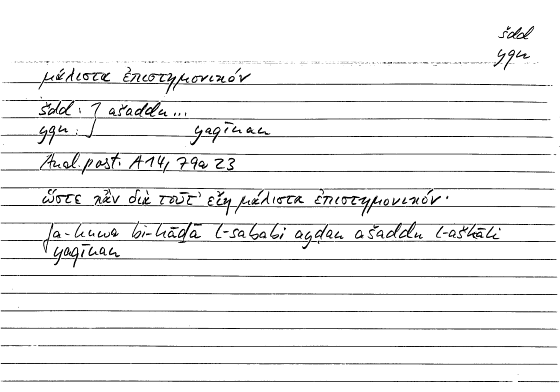 šdd
yqn
μάλιστα ἐπιστημονικόν
šdd : } ašaddu...
yqn : } yaqīnan
Anal. post. A 14, 79a 23
ὥστε κἂν διὰ τοῦτ' εἴη μάλιστα ἐπιστημονικόν·
fa-huwa bi-hāḏā l-sababi ayḍan ašaddu l-aškāli
yaqīnan